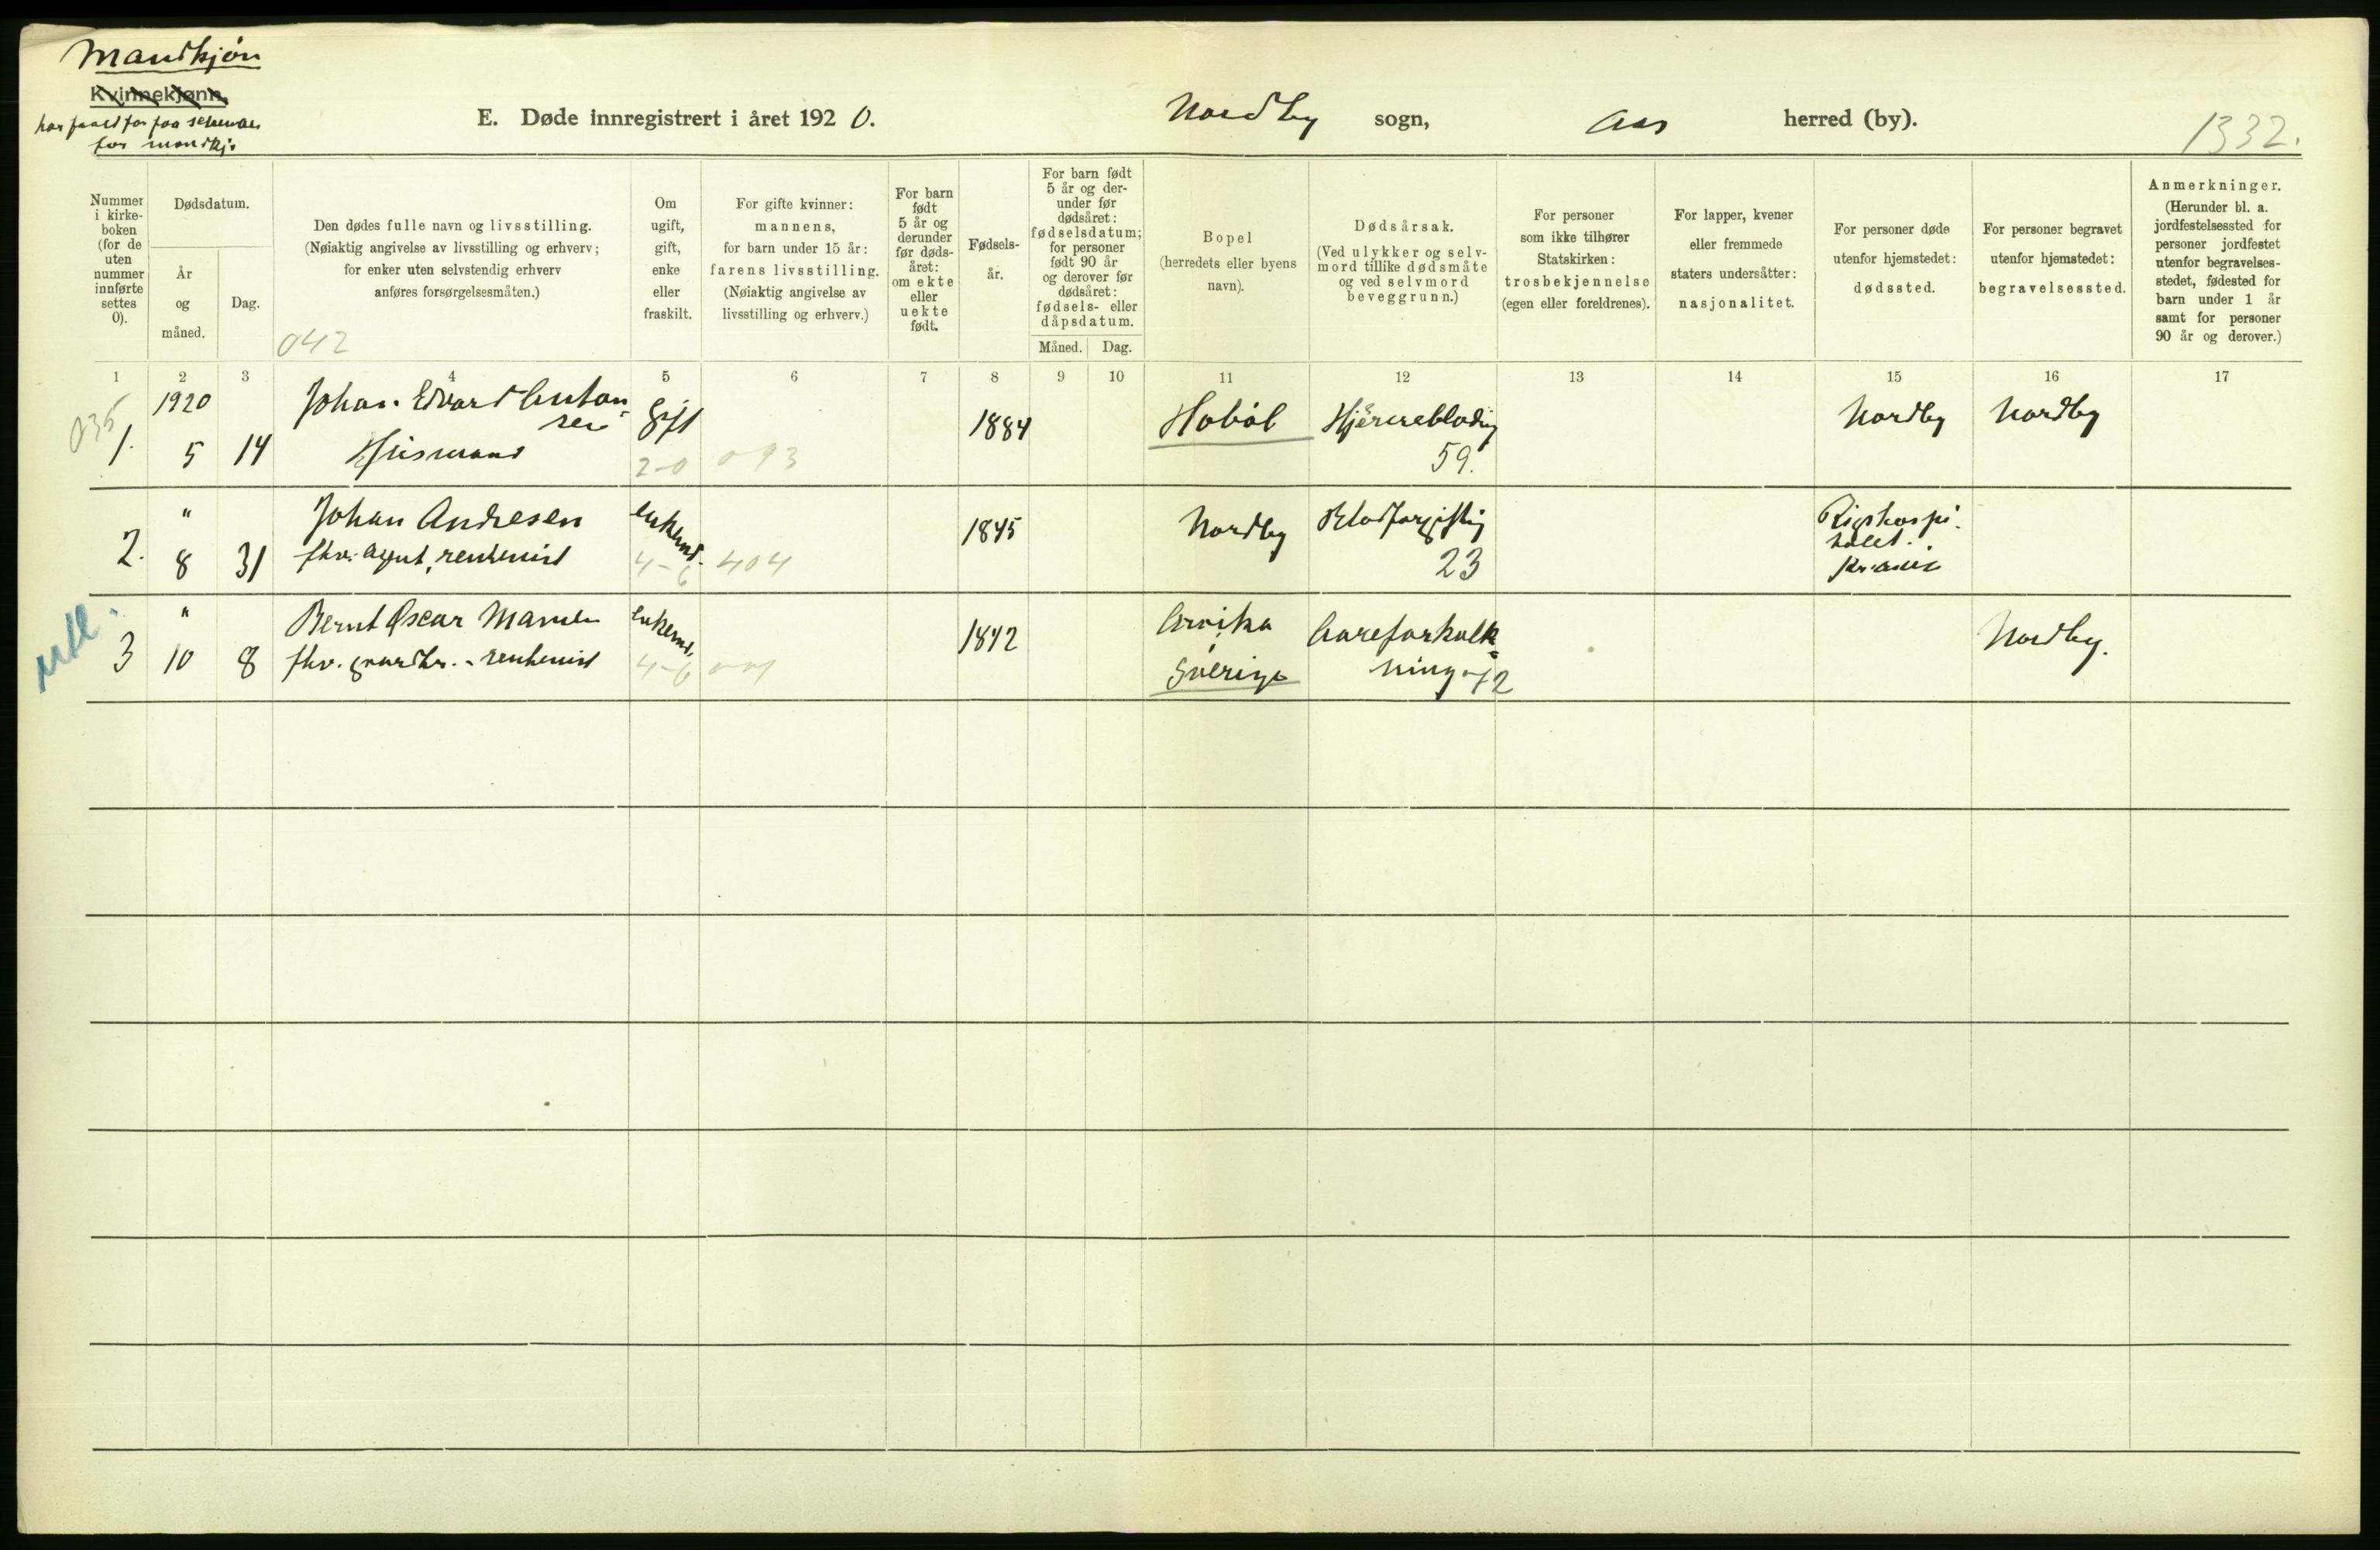 Mandkjøn
Kvinnekjønn.
har faaet for faa schemaer
for mandkj.
E. Døde innregistrert i året 1920.
Nordby sogn,
Aas herred (by).
1332.
Nummer i kirke-boken (for de uten nummer innførte settes 0).
Dødsdatum.
År og måned.
Dag.
Den dødes fulle navn og livsstilling.
(Nøiaktig angivelse av livsstilling og erhverv;
for enker uten selvstendig erhverv
anføres forsørgelsesmåten.)
042
Om ugift, gift, enke eller fraskilt.
For gifte kvinner:
mannens,
for barn under 15 år:
farens livsstilling.
(Nøiaktig angivelse av
livsstilling og erhverv.)
For barn født 5 år og derunder før døds-året: om ekte eller uekte født.
Fødsels-år.
For barn født 5 år og der-under før dødsåret: fødselsdatum; for personer født 90 år og derover før dødsåret: fødsels- eller dåpsdatum.
Måned.
Dag.
Bopel
(herredets eller byens
navn).
Dødsårsak.
(Ved ulykker og selv-
mord tillike dødsmåte
og ved selvmord
beveggrunn.)
For personer
som ikke tilhører
Statskirken:
trosbekjennelse
(egen eller foreldrenes).
For lapper, kvener
eller fremmede
staters undersåtter:
nasjonalitet.
For personer døde
utenfor hjemstedet:
dødssted.
For personer begravet
utenfor hjemstedet:
begravelsessted.
Anmerkninger.
(Herunder bl. a.
jordfestelsessted for
personer jordfestet
utenfor begravelses-
stedet, fødested for
barn under 1 år
samt for personer
90 år og derover.)
1 2 3 4 5 6 7 8 9 10 11 12 13 14 15 16 17
036
1. 1920 5 14
Johan Edvard Anton-
sen
Husmand
gift 2-0 093
1884
Hobøl
Hjerneblødn
59.
Nordby
Nordby
2. " 8 31
Johan Andresen
fhv. agent, rentenist
enkemd. 4-6 404
1845
Nordby
Blodforgiftn
23
Rigshospi-
talet.
Kr.ania
utl.
3 " 10 8
Bernt Oscar
fhv. gaardbr. - rentenist
enkemd. 4-6
1842
Arvika
Sverige
Aareforkalk-
ning 72
Nordby.